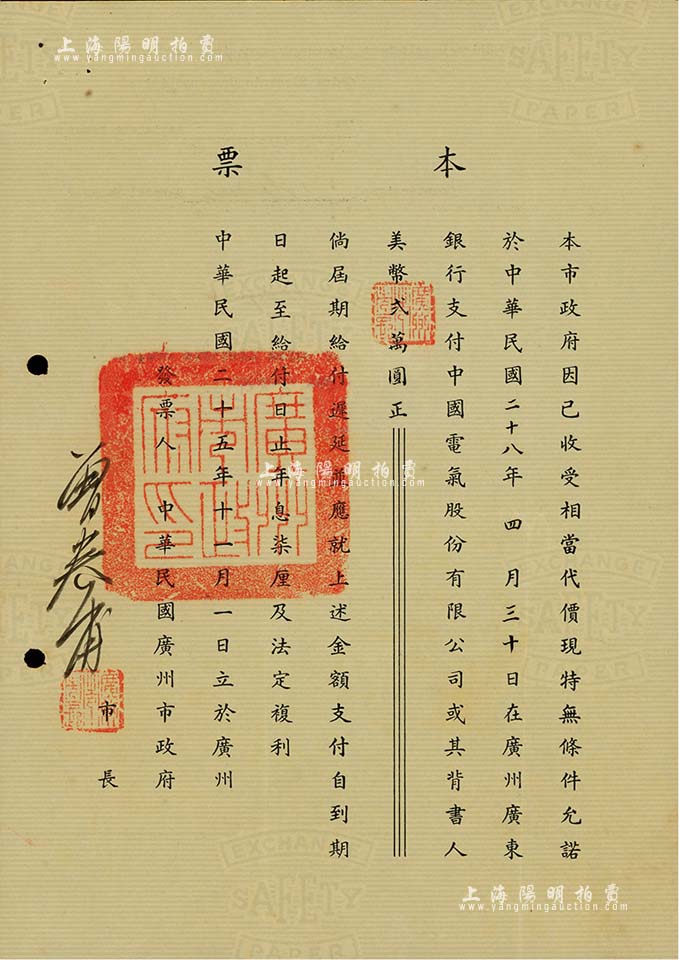 本票
本市政府因已收受相當代價現特無條件允諾
於中華民國二十八年四月三十日在廣州廣東
銀行支付中國電氣股份有限公司或其背書人
美幣弍萬圓正
倘屆期給付遲延並應就上述金額支付自到期
日起至給付日止年息柒厘及法定複利
中華民國二十五年十一月一日立於廣州
發票人 中華民國廣州市政府
市長
曾養甫
廣州市政府印
EXCHANGE
SAFETY
PAPER
上海陽明拍賣
www.yangmingauction.com
上海陽明拍賣
www.yangmingauction.com
上海陽明拍賣
www.yangmingauction.com